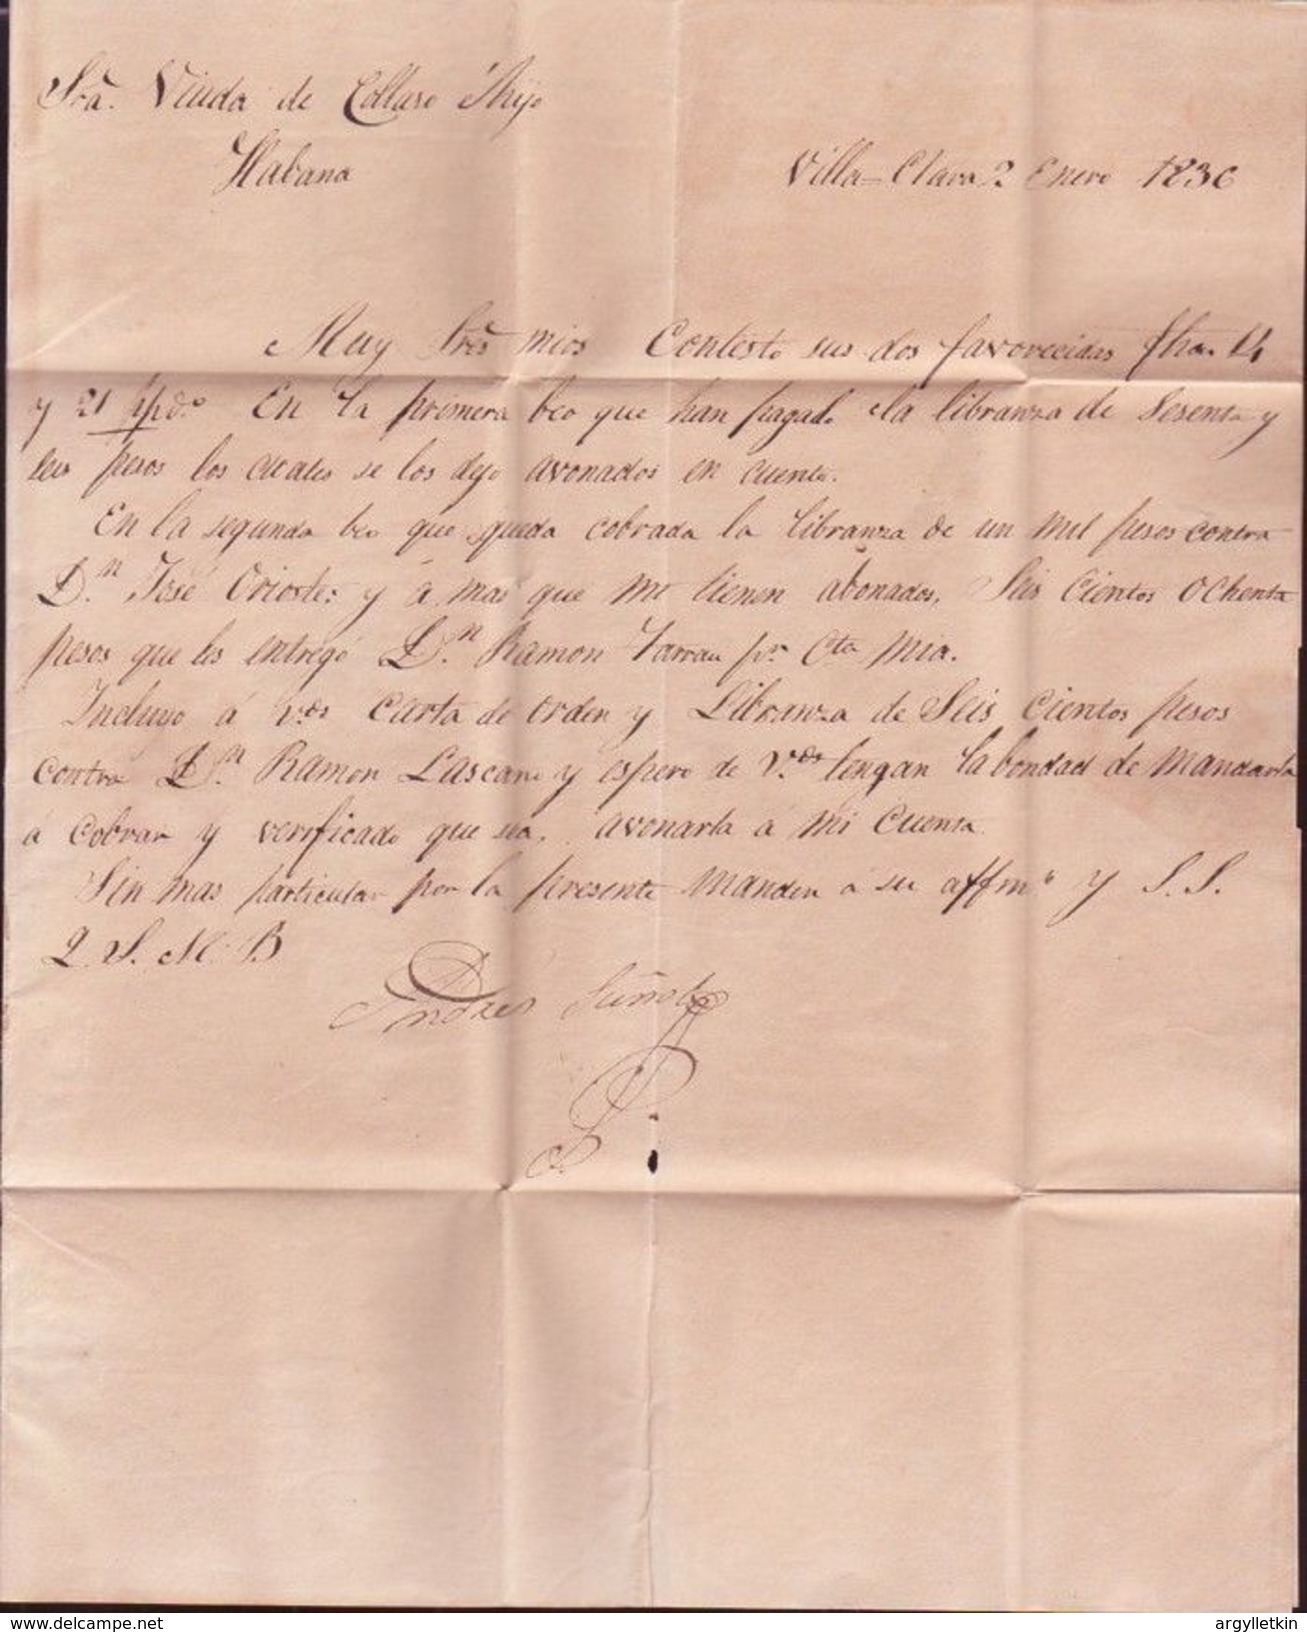 Sra. Viuda de Collaso é hijo
Habana
Villa-Clara 2 Enero 1836
Muy Sres mios Contesto sus dos favorecidas fha. 14
y 21 ppdo. En la primera beo que han pagado la libranza de Sesenta y
seis pesos los cuales se los dejo avonados en cuenta.
En la segunda beo que queda cobrada la libranza de un mil pesos contra
Dn. José y á mas que me tienen abonados, Seis Cientos Ochenta
pesos que les entregó Dn. Ramon pr. Cta mia.
Incluyo á Vds Carta de Orden y Libranza de Seis Cientos pesos
contra Dn. Ramon Lascano y espero de Vds tengan la bondad de mandarla
á Cobrar y verificado que sea, avonarla á mi Cuenta
Sin mas particular por la presente manden á su affmo y S.S.
Q. S. M. B
Andres
delcampe.net
argylletkin